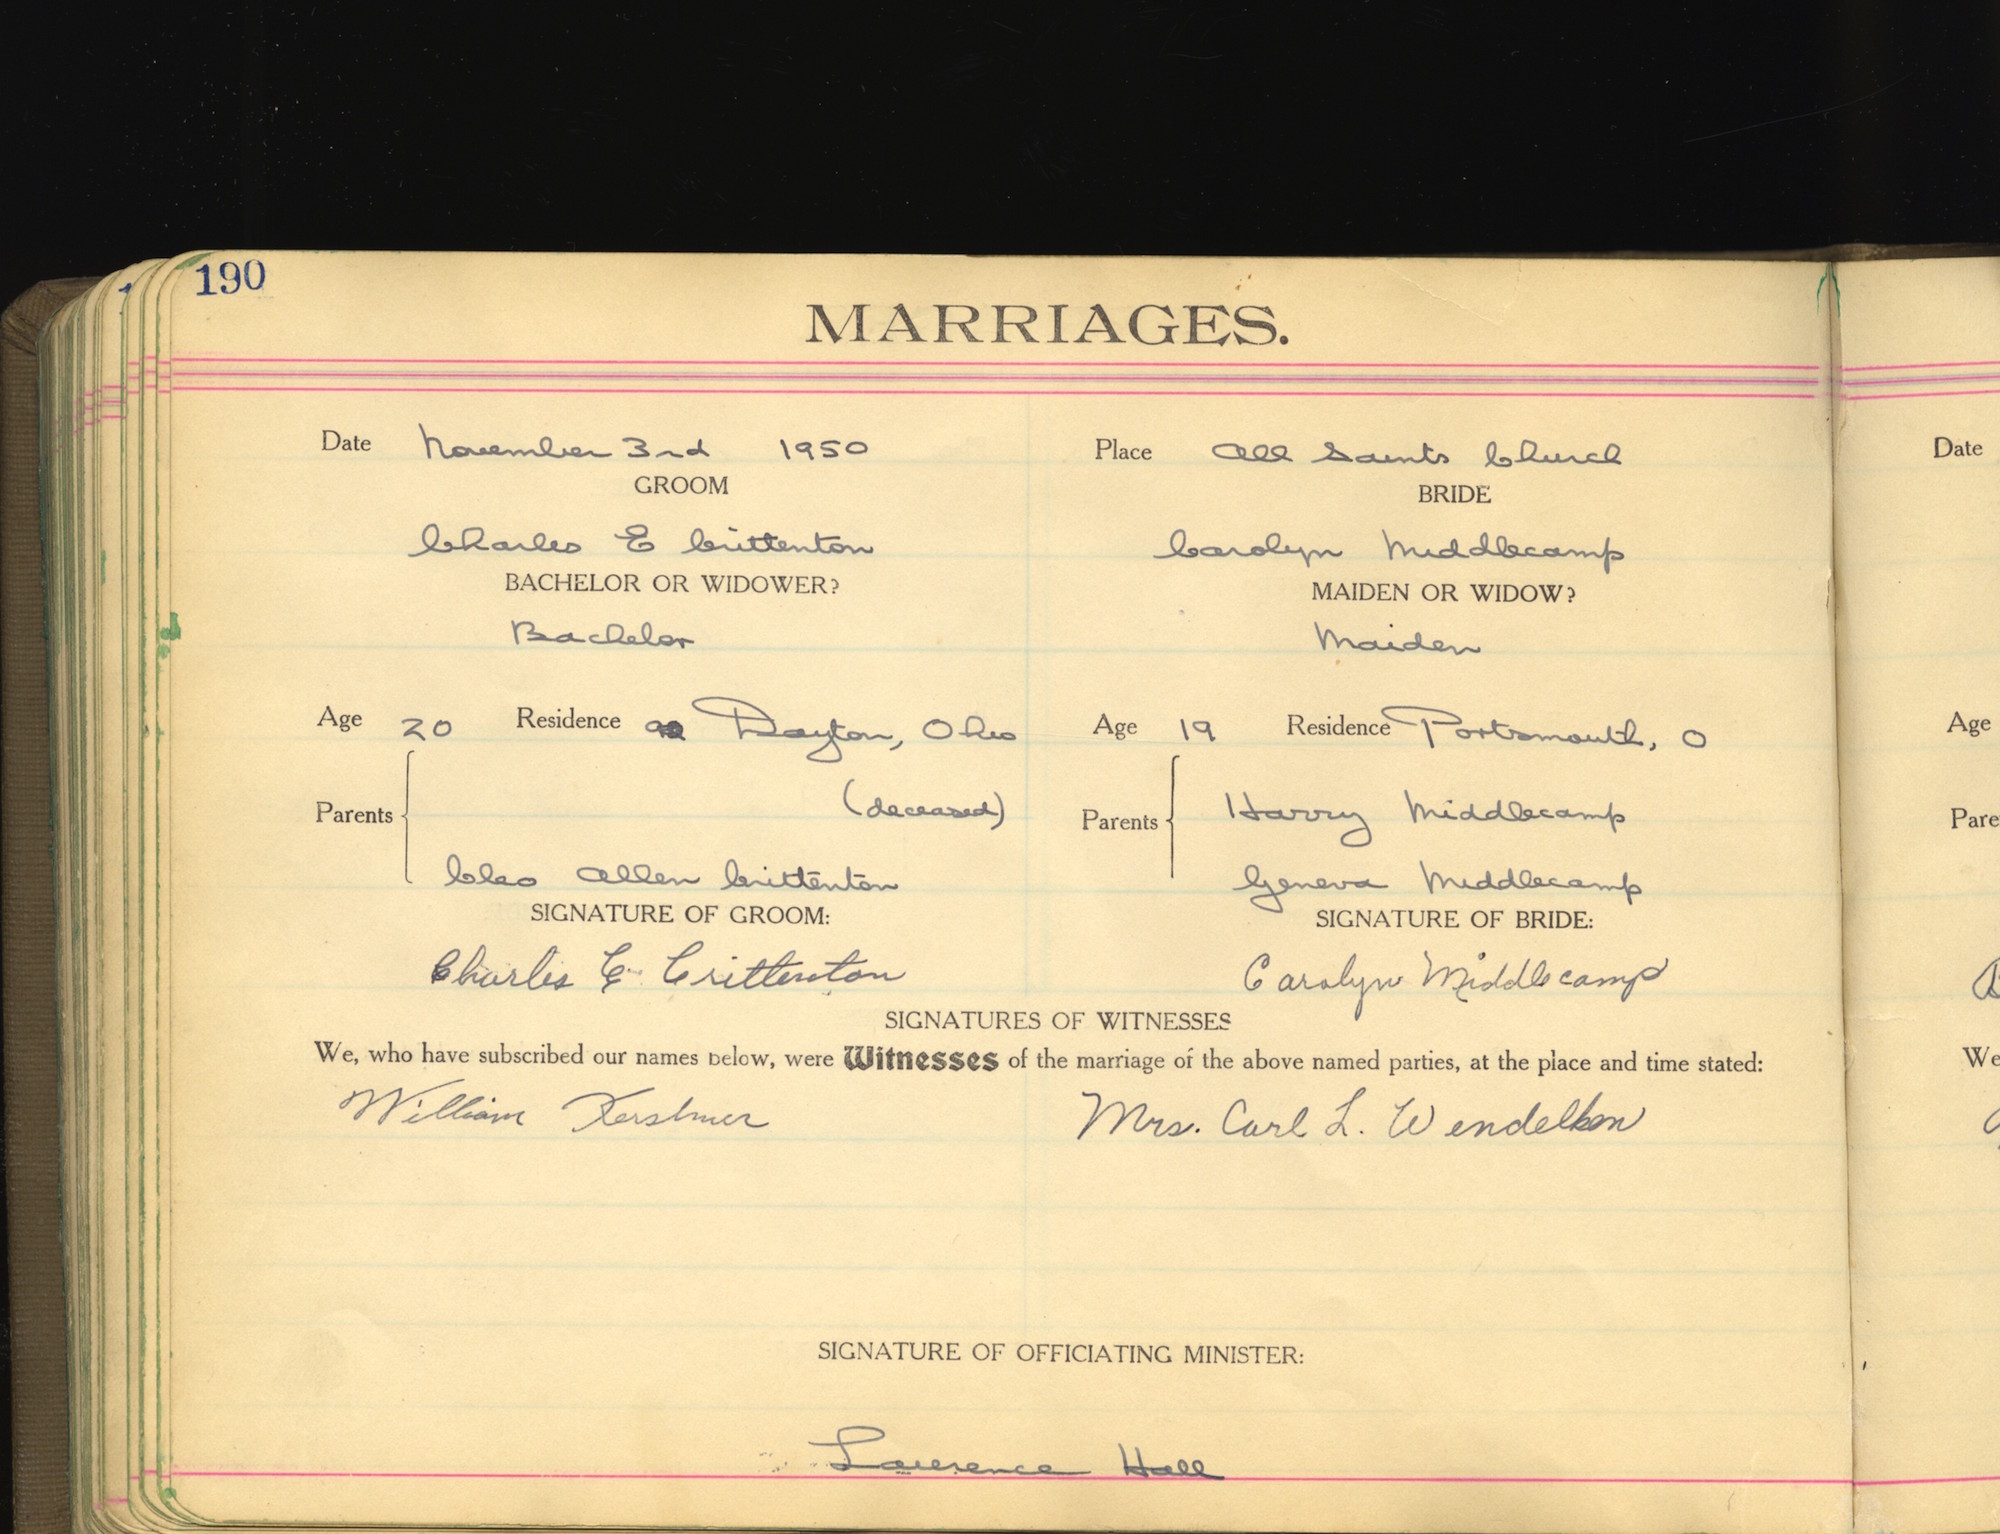 190
MARRIAGES.
Date November 3rd 1950 Place All Saints Church Date
GROOM BRIDE
Charles E Crittenton Carolyn Middlecamp
BACHELOR OR WIDOWER? MAIDEN OR WIDOW?
Bachelor Maiden
Age 20 Residence Dayton, Ohio Age 19 Residence Portsmouth, O Age
(deceased) Harry Middlecamp
Parents Parents Pare
Cleo Allen Crittenton Geneva Middlecamp
SIGNATURE OF GROOM: SIGNATURE OF BRIDE:
Charles E. Crittenton Carolyn Middlecamp
SIGNATURES OF WITNESSES
We, who have subscribed our names below, were Witnesses of the marriage of the above named parties, at the place and time stated: We
William Mrs. Carl L. Wendelken
SIGNATURE OF OFFICIATING MINISTER:
Lawrence Hall